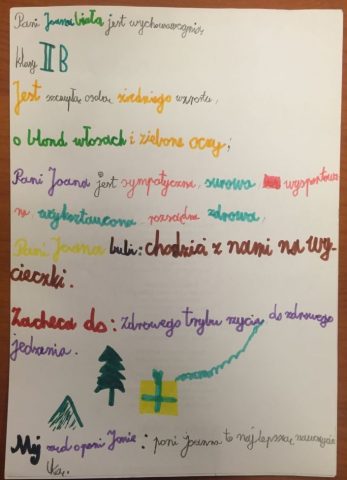 Pani Joanna biała jest wychowawczynią
klasy II B
Jest szczupłą osobą średniego wzrostu,
o blond włosach i zielone oczy,
Pani Joana jest sympatyczna, surowa wysportowa
na wykształcona, rozsądna zdrowa,
Pani Joanna lubi: chodzici z nami na wy-
cieczki.
Zacheca do: Zdrowego trybu życia, do zdrowego
jedzenia.
Mój o pani Joanie: pani joanna to najlepsza nauczycie
lka.